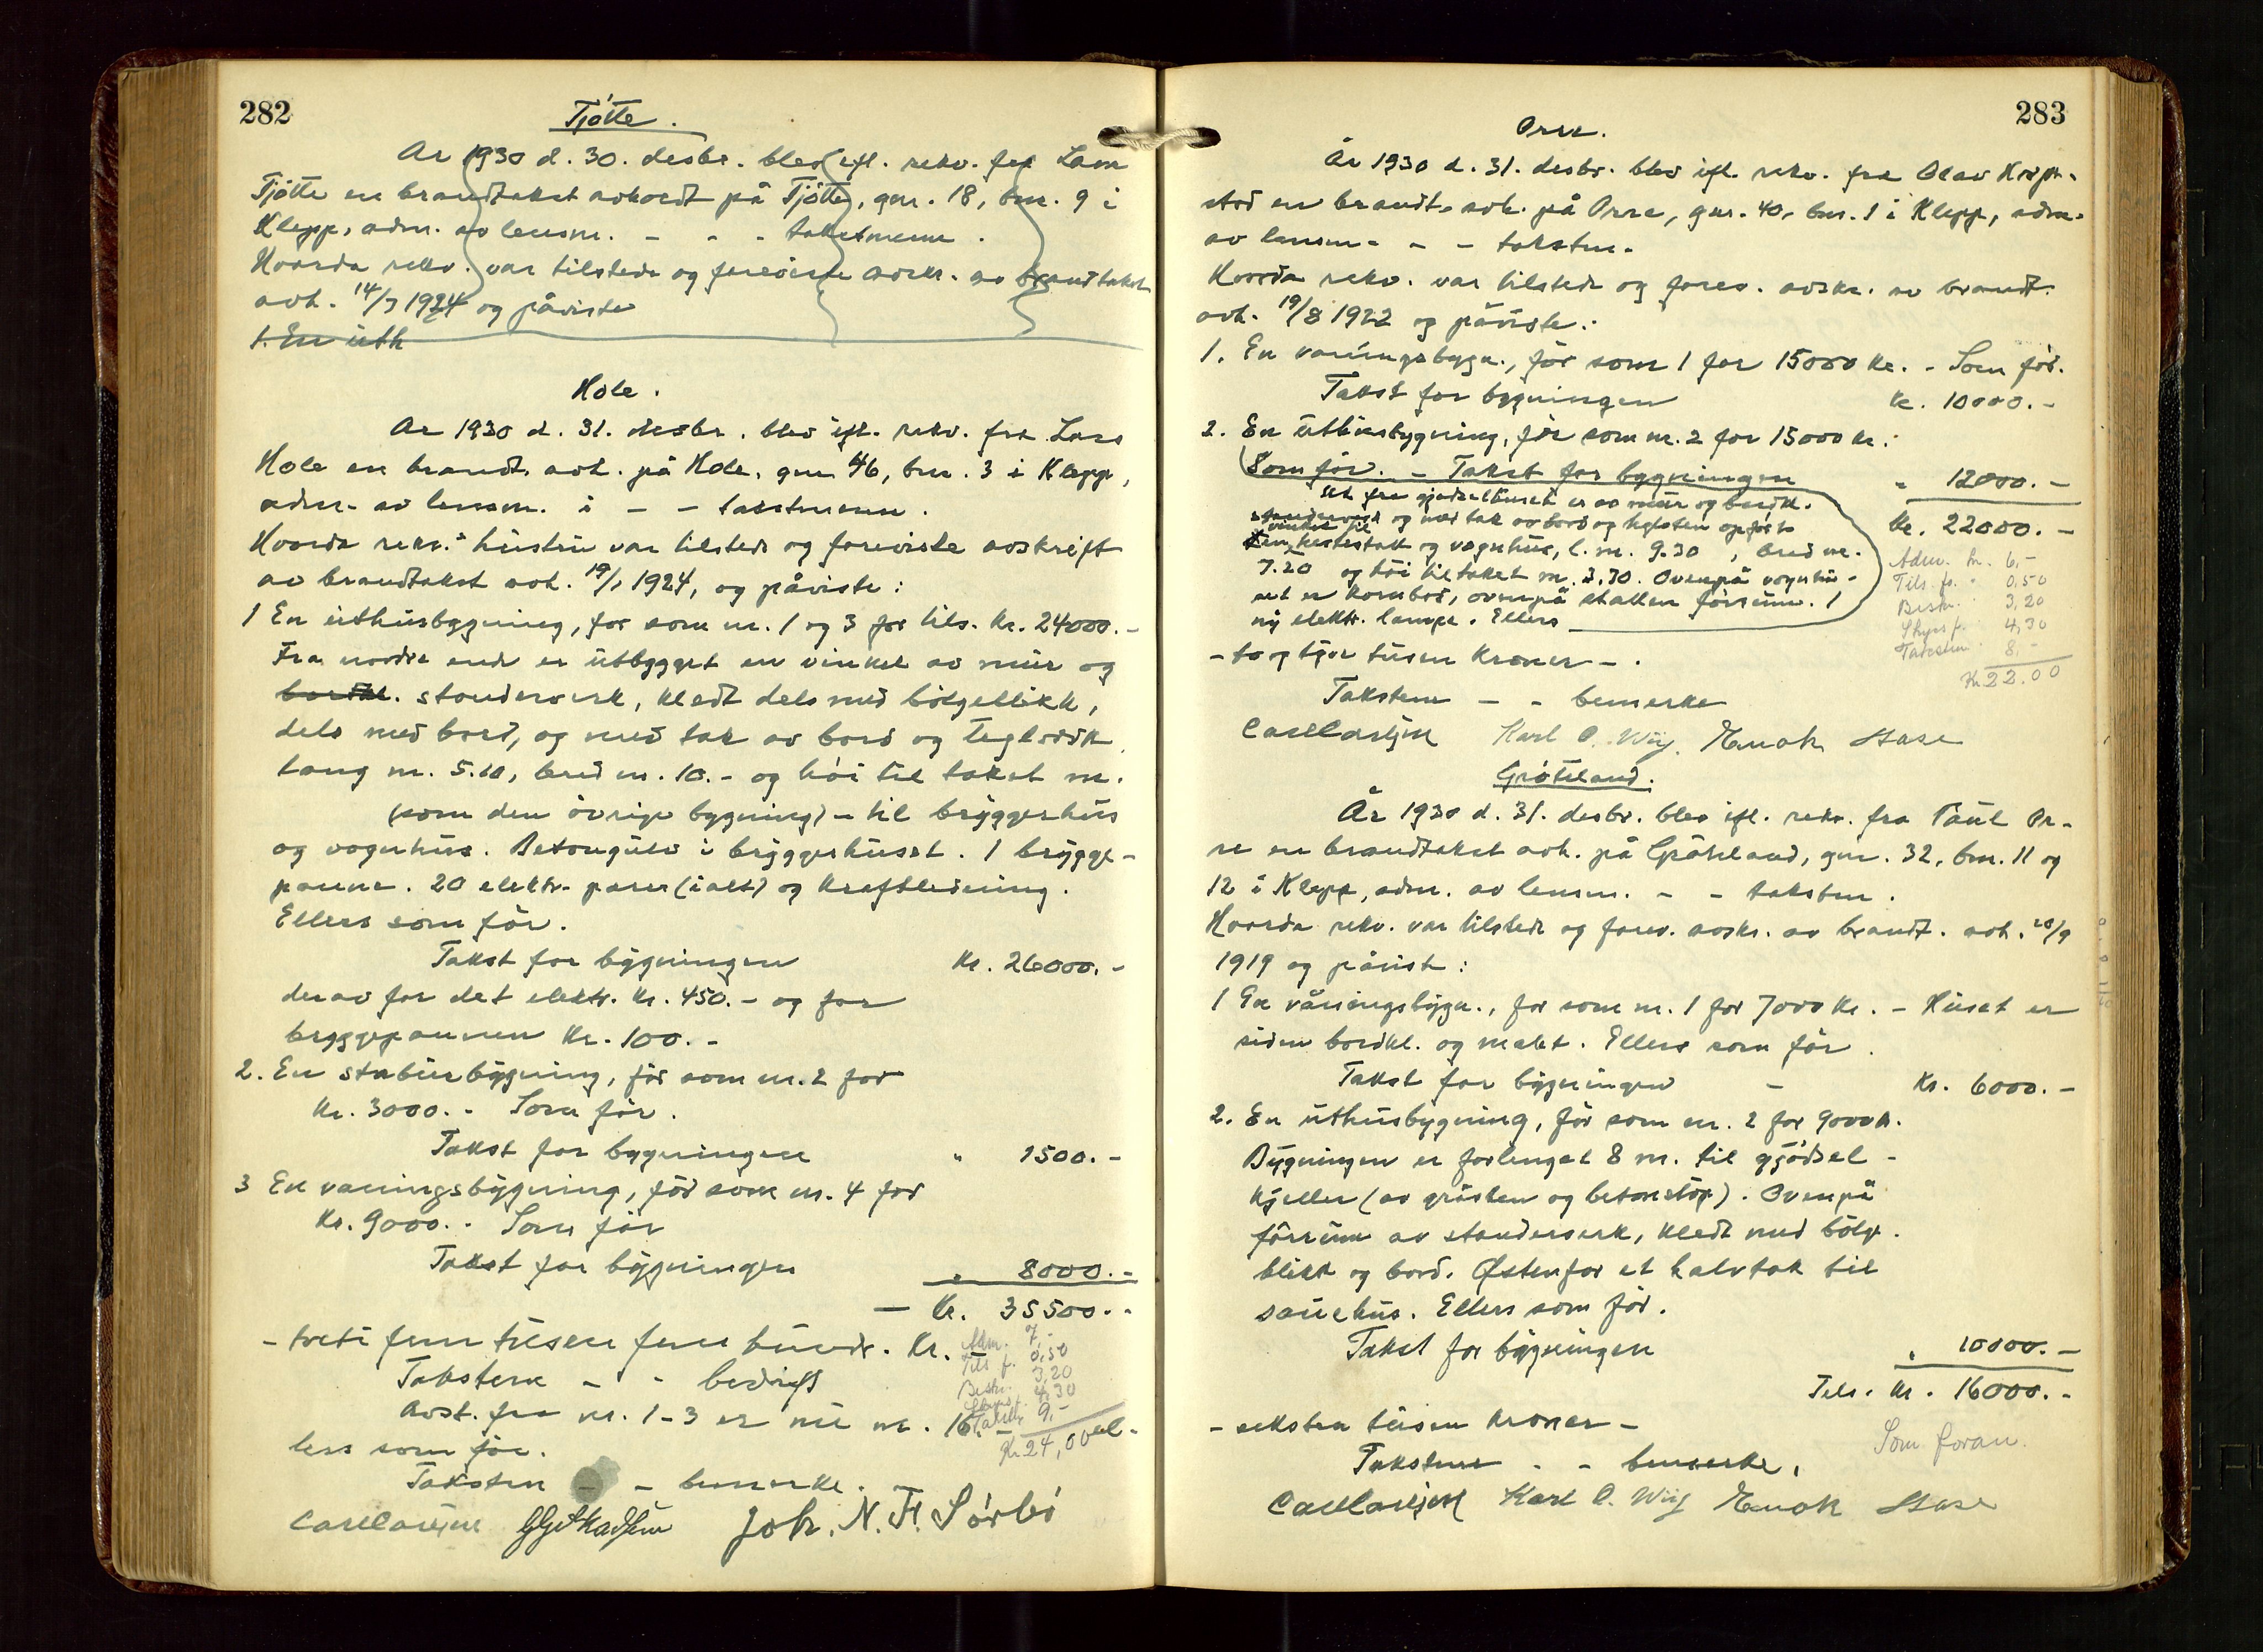 282
Tjøtte.
År 1930 d. 30. desbr. blev ifl. rekv. fra Lars
Tjøtte en brandtakst avholdt på Tjøtte, gnr. 18, bnr. 9 i
Klepp, adm. av lensm. - - - takstmenn.
Hvorda rekv. var tilstede og foreviste avskr. av brandtakst
avh. 14/7 1924 og påviste
1. En uth
Hole.
År 1930 d. 31. desbr. blev ifl. rekv. fra Lars
Hole en brandt. avh. på Hole, gnr 46, bnr. 3 i Klepp,
adm. av lensm. i - - takstmenn.
Hvorda rekv.s hustru var tilstede og foreviste avskrift
av brandtakst avh. 19/1 1924, og påviste:
1 En uthusbygning, før som nr. 1 og 3 for tils. kr. 24000.-
Fra nordre ende er utbygget en vinkel av mur og
bordkl. stenderverk, kledt dels med bølgeblikk,
dels med bord, og med tak av bord og teglsten
lang m. 5.10, bred m. 10.- og høi til taket m.
(som den øvrige bygning) - til bryggerhus
og vognhus. Betongulv i bryggerhuset. 1 brygge-
panne. 20 elektr. parer (i alt) og kraftledning.
Ellers som før.
Takst for bygningen Kr. 26000.-
derav for det elektr. kr. 450.- og for
bryggepannen kr. 100.-
2. En stabursbygning, før som nr. 2 for
kr. 3000.- Som før.
Takst for bygningen " 1500.-
3 En våningsbygning, før som nr. 4 for
kr. 9000.- Som før
Takst for bygningen " 8000.-
- Kr. 35500.-
- treti fem tusen fem hundr. kr. -
Adm. 7.-
Tils f. 0,50
Beskr. 3,20
Skyssf. 4,30
Takstm. 9.-
Kr 24,00
Takstene - - bedrift
Avst. fra nr. 1-3 er nu m. 16. - el-
lers som før.
Takstm - - bemerke.
Joh. N. F. Sørbø
283
Orre.
År 1930 d. 31. desbr. blev ifl. rekv. fra Olav
stad en brandt. avh. på Orre, gnr. 40, bnr. 1 i Klepp, adm.
av lensm. - - takstm.
Hvorda rekv. var tilstede og forev. avskr. av brandt.
avh. 19/8 1922 og påviste:
1. En våningsbygn., før som 1 for 15000 kr. - Som før.
Takst for bygningen kr. 10000.-
2. En uthusbygning, før som nr. 2 for 15000 kr.
Som før. - Takst for bygningen " 12000.-
Ut fra gjødselhuset er av mur og bordk.
stenderverk og med tak av bord og teglsten opført
en vinkel til hestestall og vognhus, l. m. 9.30, bred m.
7.20 og høi til taket m. 3.70. Ovenpå vognhu-
set er kornbod, ovenpå stallen fórrum. 1
ny elektr. lampe. Ellers
Kr. 22000.-
Adm. kr. 6,-
Tils. f. " 0,50
Beskr. 3,20
Skyss f. 4,30
Takstm. 8,-
Kr 22.00
- to og tyve tusen kroner -.
Takstene - - bemerke
Karl O. Wiig. Enok Hase
Grøteland.
År 1930 d. 31. desbr. blev ifl. rekv. fra Paul Or-
re en brandtakst avh. på Grøteland, gnr. 32, bnr. 11 og
12 i Klepp, adm. av lensm. - - takstm.
Hvorda rekv. var tilstede og forev. avskr. av brandt. avh. 20/9
1919 og påvist:
1 En våningsbygn., før som nr. 1 for 7000 kr. - Huset er
siden bordkl. og malet. Ellers som før.
Takst for bygningen - Kr. 6000.-
2. En uthusbygning, før som nr. 2 for 9000 k.
Bygningen er forlenget 8 m. til gjødsel-
kjeller (av gråsten og betonstøp). Ovenpå
fórrum av stenderverk, kledt med bølge-
blikk og bord. Østenfor et halvtak til
sauehus. Ellers som før.
Takst for bygningen " 10000.-
Tils. kr. 16000.-
- seksten tusen kroner -
Som foran.
Takstene - - bemerke.
Karl O. Wiig Enok Hase